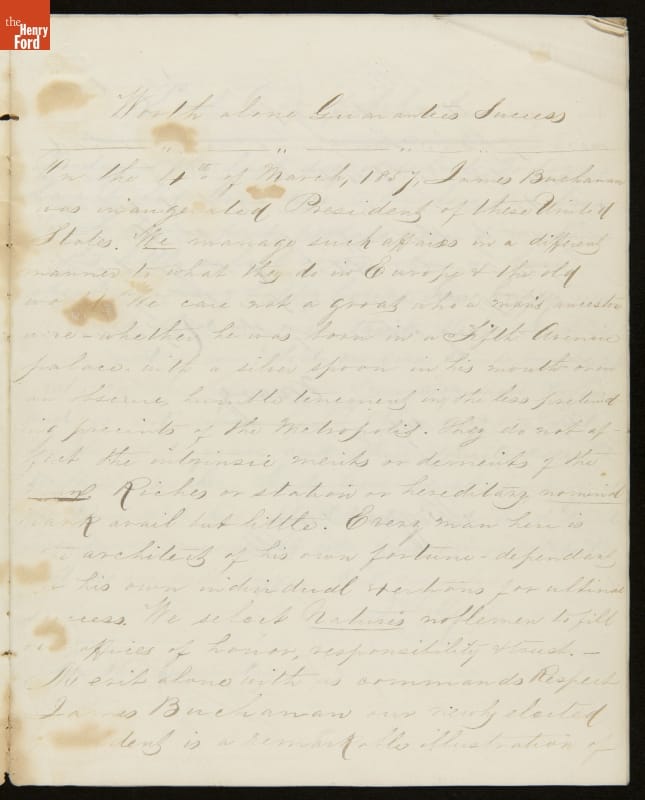 the
Henry
Ford
Worth alone Guarantees Success
On the 4th of March, 1857, James Buchanan
was inaugerated President of these United
States. We manage such affairs in a different
manner to what they do in Europe & the old
world. We care not a groat who a man's ancestors
were – whether he was born in a Fifth Avenue
palace with a silver spoon in his mouth or in
an obscure, humble tenement in the less pretend
ing precincts of the Metropolis. They do not af
fect the intrinsic merits or demerits of the
Riches or station or hereditary nominal
rank avail but little. Every man here is
architect of his own fortune – dependant
his own individual exertions for ultimate
success. We select Nature's noblemen to fill
offices of honor, responsibility & trust. –
Merit alone with us commands Respect
James Buchanan our newly elected
dent is a remarkable illustration of